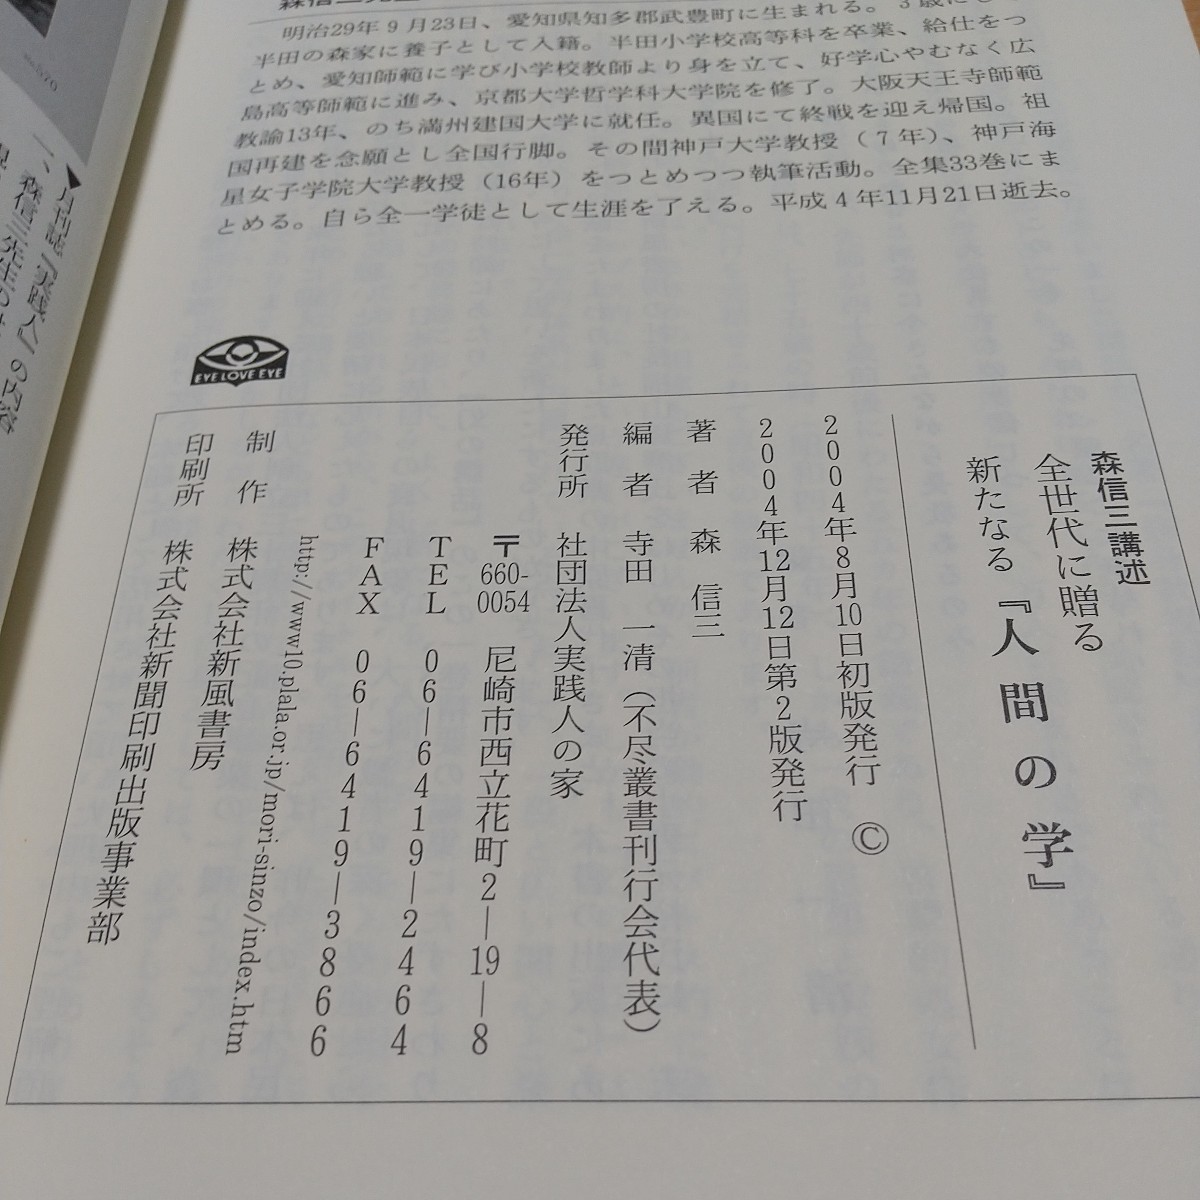 明治29年9月23日、愛知県知多郡武豊町に生まれる。3歳にして
半田の森家に養子として入籍。半田小学校高等科を卒業、給仕をつ
とめ、愛知師範に学び小学校教師より身を立て、好学心やむなく広
島高等師範に進み、京都大学哲学科大学院を修了。大阪天王寺師範
教諭13年、のち満州建国大学に就任。異国にて終戦を迎え帰国。祖
国再建を念願とし全国行脚。その間神戸大学教授(7年)、神戸海
星女子学院大学教授(16年)をつとめつつ執筆活動。全集33巻にま
とめる。自ら全一学徒として生涯を了える。平成4年11月21日逝去。
EYE LOVE EYE
森信三講述
全世代に贈る
新たなる『人間の学』
2004年8月10日初版発行 ©
2004年12月12日第2版発行
著者 森 信三
編者 寺田 一清(不尽叢書刊行会代表)
発行所 社団法人実践人の家
〒660-0054 尼崎市西立花町2―19―8
TEL 06―6419―2464
FAX 06―6419―3866
http://www10.plala.or.jp/mori-sinzo/index.htm
制作 株式会社新風書房
印刷所 株式会社新聞印刷出版事業部
▼月刊誌『実践人』の内容
一、森信三先生の
570